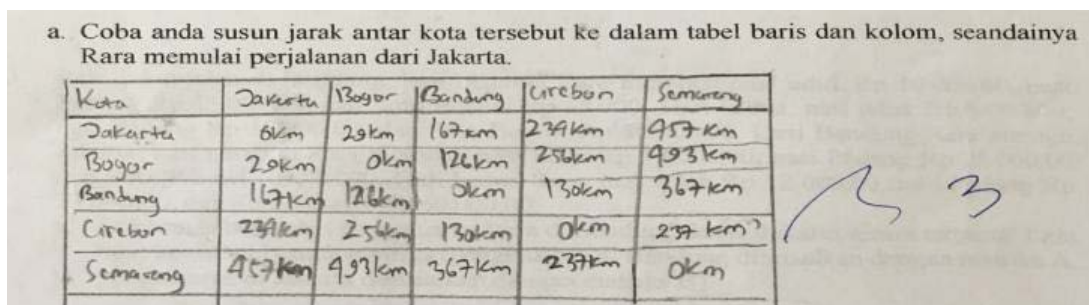 a. Coba anda susun jarak antar kota tersebut ke dalam tabel baris dan kolom, seandainya
Rara memulai perjalanan dari Jakarta.
Kota Jakarta Bogor Bandung Cirebon Semarang
Jakarta 0km 29km 167km 239km 457km
Bogor 29km 0km 126km 256km 493km
Bandung 167km 126km 0km 130km 367km
Cirebon 239km 256km 130km 0km 237 km
Semarang 457km 493km 367km 237km 0km
3